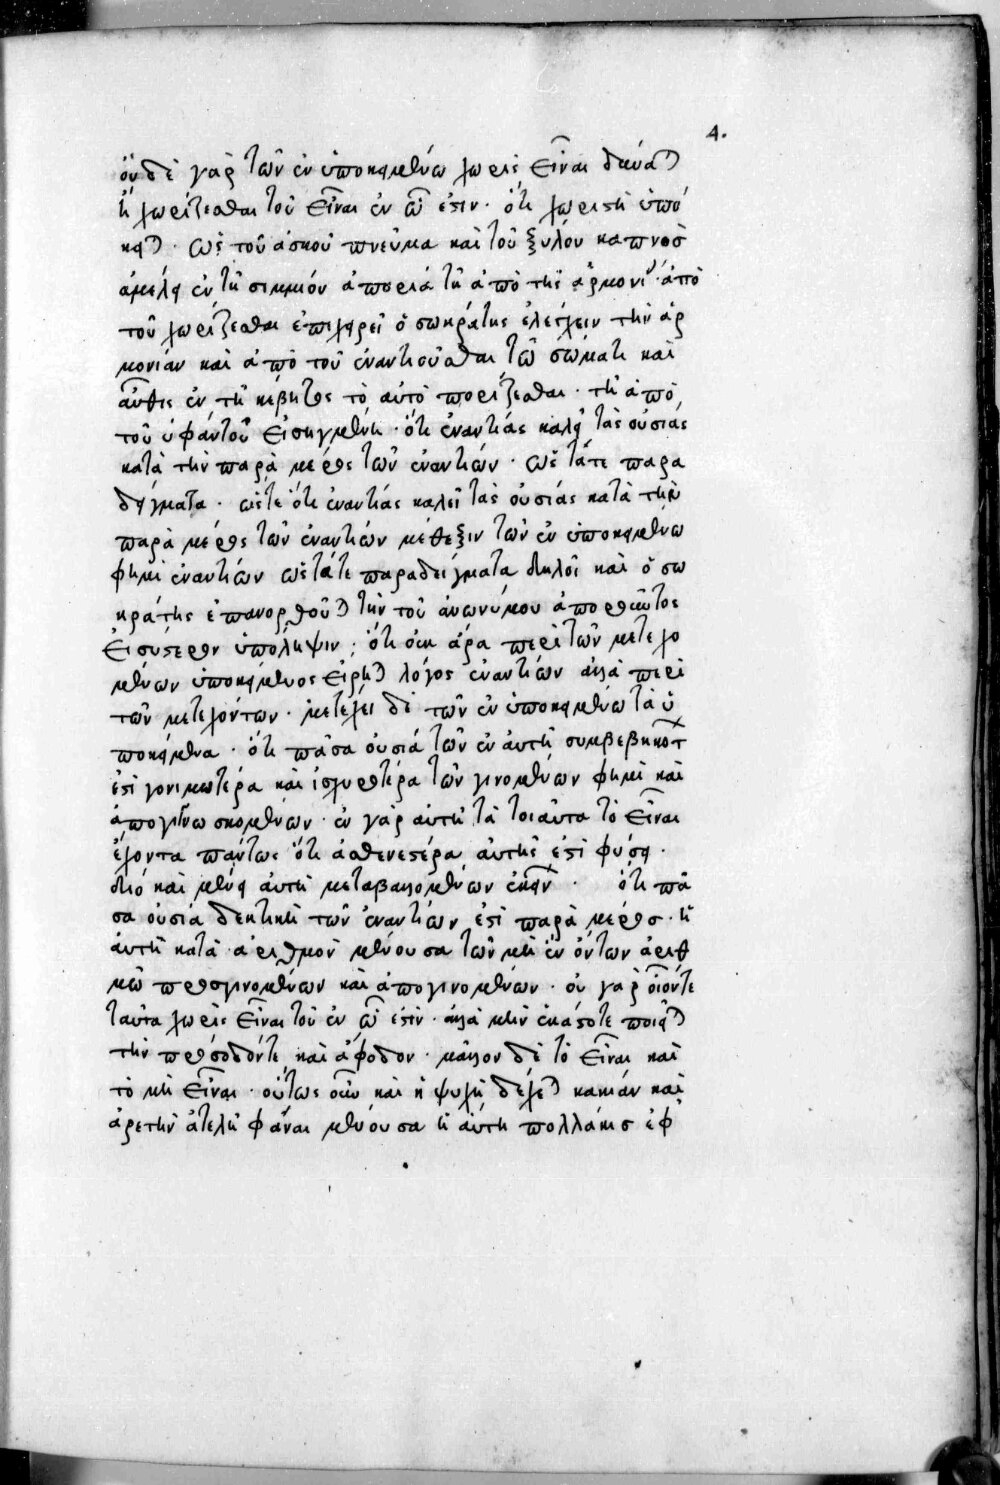 4.
οὐδὲ γὰρ τῶν ἐν ὑποκειμένω χωρὶς εἶναι δύναται
ἢ χωρίζεσθαι τοῦ εἶναι ἐν ὧ ἐστιν · ὅτι χωριστὴ ὑπό
κειται · ὡς τοῦ ἀσκοῦ πνεῦμα καὶ τοῦ ξύλου καπνοσ
ἀμέλει ἐν τῆ σιμμίου ἀπορία τῆ ἀπὸ τῆς ἁρμονίας · ἀπὸ
τοῦ χωρίζεσθαι ἐπιχειρεῖ ὁ σωκράτης ἐλέγχειν τὴν ἁρ
μονίαν καὶ ἀπὸ τοῦ ἐναντιοῦσθαι τῶ σώματι καὶ
αὖθις ἐν τῆ κέβητος τὸ αὐτὸ πορίζεσθαι · τῆ ἀπὸ
τοῦ ὑφάντου εἰσηγμένη · ὅτι ἐναντίας καλεῖ τὰς οὐσίας
κατὰ τὴν παρὰ μέρος τῶν ἐναντίων · ὡς τάτε παρα
δείγματα · ὥστε ὅτι ἐναντίας καλεῖ τὰς οὐσίας κατὰ τὴν
παρὰ μέρος τῶν ἐναντίων μέθεξιν τῶν ἐν ὑποκειμένω
φημὶ ἐναντίων ὡς τάτε παραδείγματα δηλοῖ καὶ ὁ σω
κράτης ἐπανορθοῦται τὴν τοῦ ἀνωνύμου ἀποροῦντος
εἰς ὕστερον ὑπόληψιν · ὅτι οὐκ ἄρα περὶ τῶν μετεχο
μένων ὑποκειμένος εἴρηται λόγος ἐναντίων ἀλλὰ περὶ
τῶν μετεχόντων · μετέχει δὲ τῶν ἐν ὑποκειμένω τὰ ὑ
ποκείμενα · ὅτι πᾶσα οὐσία τῶν ἐν αὐτῆ συμβεβηκότ
ἐστὶ γονιμωτέρα καὶ ἰσχυροτέρα τῶν γινομένων φημὶ καὶ
ἀπογινωσκομένων · ἐν γὰρ αὐτῆ τὰ τοιαῦτα τὸ εἶναι
ἔχοντα πάντως ὅτι ἀσθενεστέρα αὐτῆς ἐστὶ φύσει ·
διό καὶ μένει αὐτὴ μεταβαλλομένων ἐκείνων · ὅτι πᾶ
σα οὐσία δεκτικὴ τῶν ἐναντίων ἐστὶ παρὰ μέροσ · ἡ
αὐτὴ κατὰ ἀριθμὸν μένουσα τῶν μὴ ἓν ὄντων ἀριθ
μῶ προσγινομένων καὶ ἀπογινομένων · οὐ γὰρ οἷόντε
ταῦτα χωρὶς εἶναι τοῦ ἐν ὧ ἐστίν · ἀλλὰ μὴν ἑκάστοτε ποιεῖται
τὴν πρόσοδόντε καὶ ἄφοδον · μᾶλλον δὲ τὸ εἶναι καὶ
τὸ μὴ εἶναι · οὕτως οὖν καὶ ἡ ψυχὴ δέχεται κακίαν καὶ
ἀρετὴν ἀτελῆ φάναι μένουσα ἡ αὐτὴ πολλάκισ ἐφ